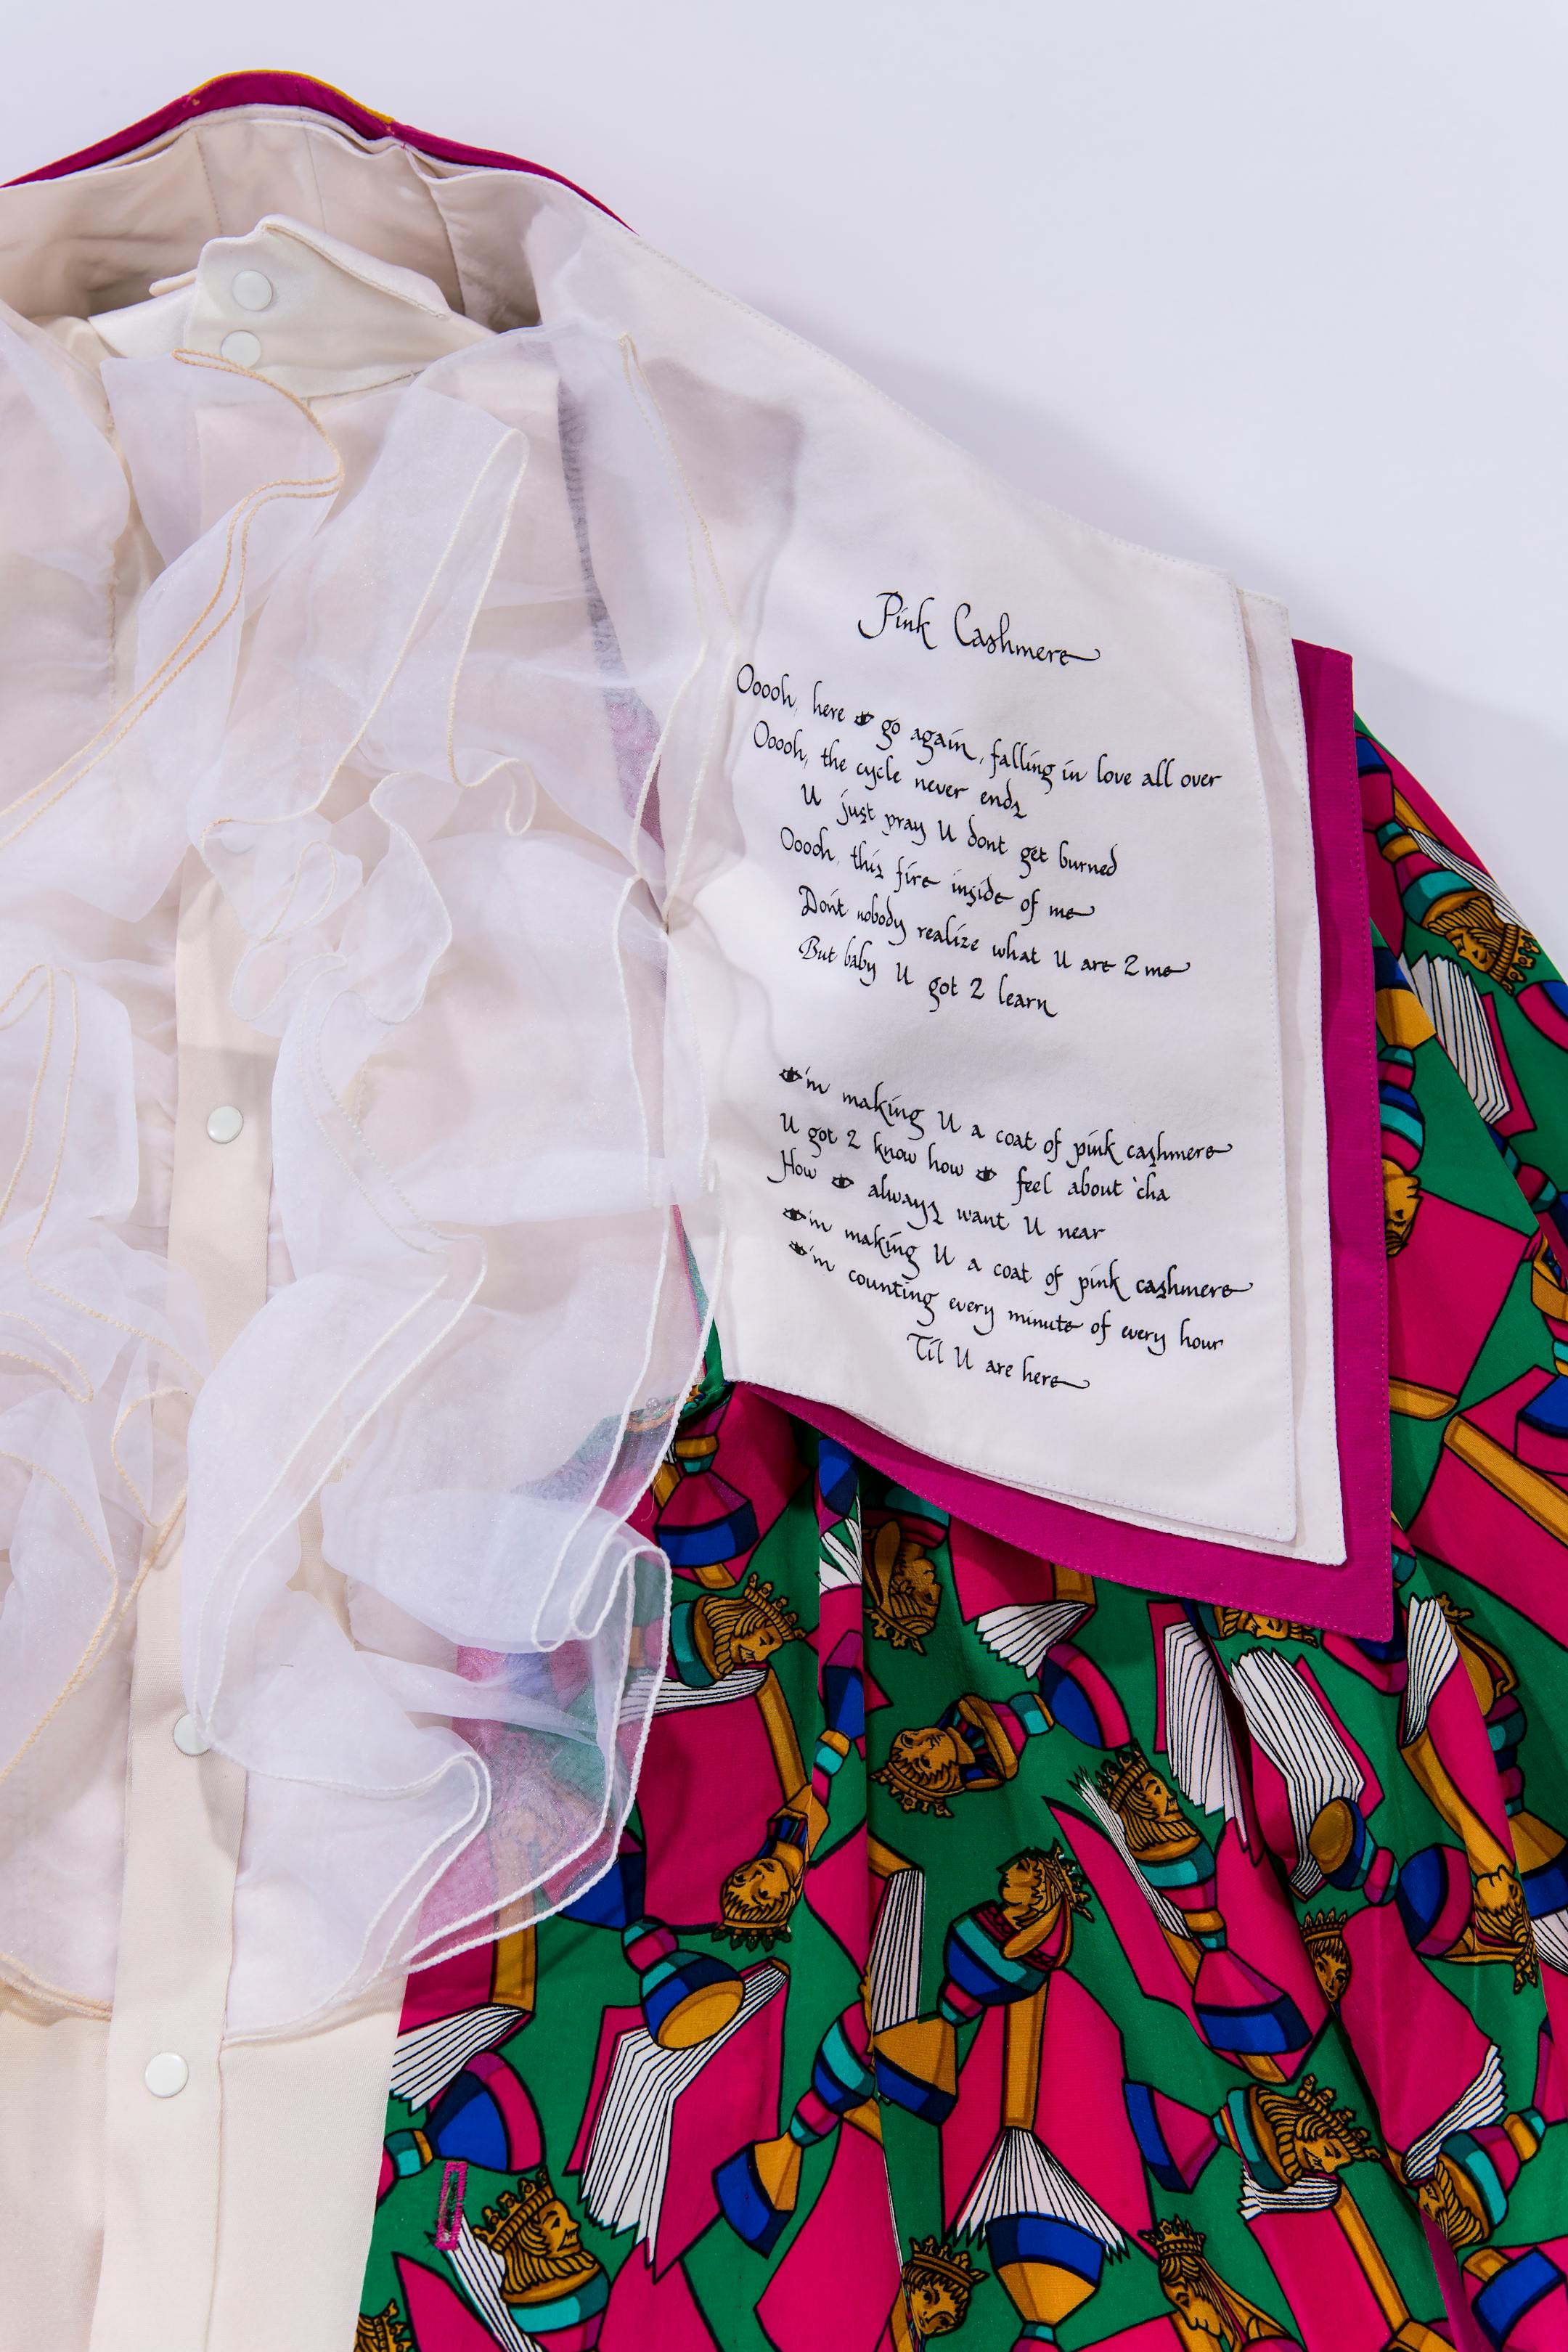 Pink Cashmere
Ooooh, here 👁 go again, falling in love all over
Ooooh, the cycle never ends
U just pray U dont get burned
Ooooh, this fire inside of me
Don't nobody realize what U are 2 me
But baby U got 2 learn
👁'm making U a coat of pink cashmere
U got 2 know how 👁 feel about 'cha
How 👁 always want U near
👁'm making U a coat of pink cashmere
👁'm counting every minute of every hour
Til U are here